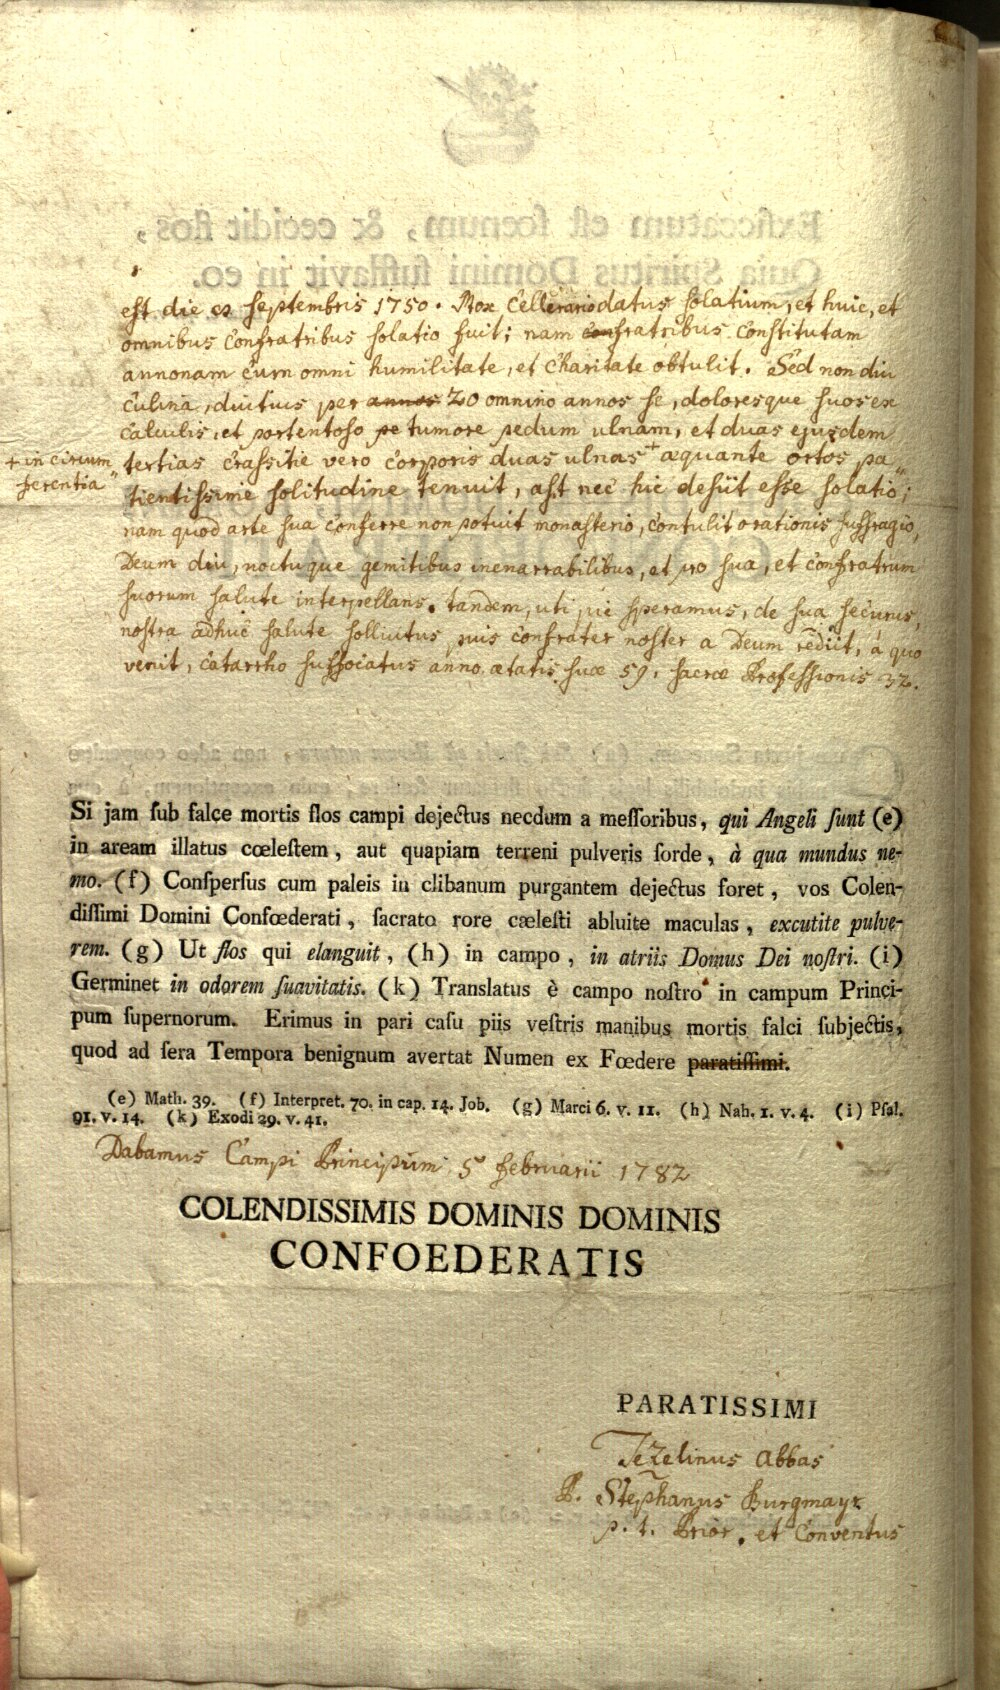 est die 21 Septembris 1750. Mox Cellerario datus solatium, et huic, et
omnibus Confratribus solatio fuit; nam confratribus constitutam
annonam cum omni humilitate, et Charitate obtulit. Sed non diu
culina, diutius per annos 20 omnino annos se, doloresque suos ex
calculis, et portentoso pe tumore pedum ulnam, et duas ejusdem
tertias crassitie vero corporis duas ulnas + æquante ortos pa„
+ in circum„
ferentia
tientissime solitudine tenuit, ast nec hic desiit esse solatio;
nam quod arte sua conferre non potuit monasterio, contulit orationis suffragio,
Deum diu, noctuque gemitibus inenarrabilibus, et pro sua, et confratrum
suorum salute interpellans. tandem, uti pie speramus, de sua securus,
nostra adhuc salute sollicitus piis confrater noster a Deum rediit, à quo
venit, catarrho suffocatus anno ætatis suæ 59. sacræ Professionis 32.
Si jam sub falce mortis flos campi dejectus necdum a messoribus, qui Angeli sunt (e)
in aream illatus cœlestem, aut quapiam terreni pulveris sorde, à qua mundus ne-
mo. (f) Conspersus cum paleis in clibanum purgantem dejectus foret, vos Colen-
dissimi Domini Confœderati, sacrato rore cælesti abluite maculas, excutite pulve-
rem. (g) Ut flos qui elanguit, (h) in campo, in atriis Domus Dei nostri. (i)
Germinet in odorem suavitatis. (k) Translatus è campo nostro in campum Princi-
pum supernorum. Erimus in pari casu piis vestris manibus mortis falci subjectis,
quod ad sera Tempora benignum avertat Numen ex Fœdere paratissimi.
(e) Math. 39. (f) Interpret. 70. in cap. 14. Job. (g) Marci 6. v. 11. (h) Nah. 1. v. 4. (i) Psal.
91. v. 14. (k) Exodi 29. v. 41.
Dabamus Campi Principum 5 februarii 1782
COLENDISSIMIS DOMINIS DOMINIS
CONFOEDERATIS
PARATISSIMI
Tezelinus Abbas
P. Stephanus Burgmayr
p. t. Prior, et Conventus